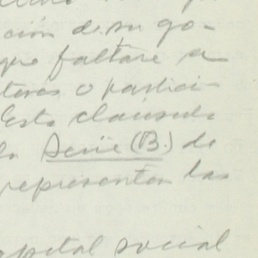 ción de su go-
que faltare a
teros o partici-
Esta cláusula
la Serie (B.) de
representen las
capital social